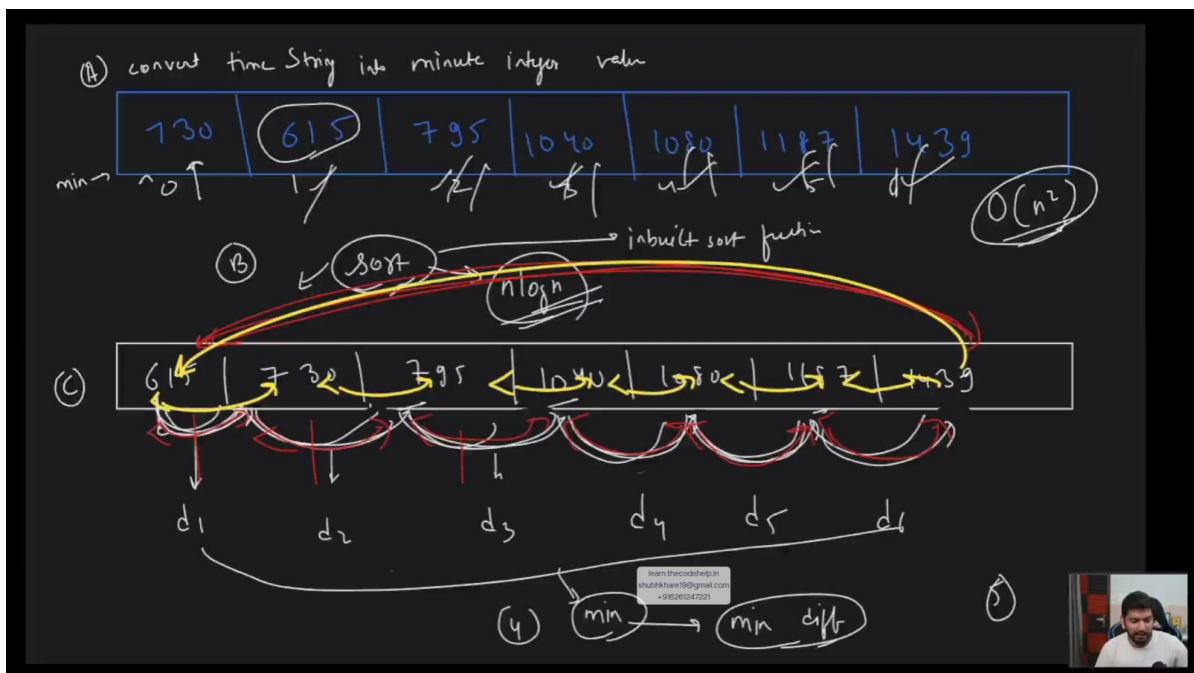 A convert time String into minute integer value
730 615 795 1040 1080 1187 1439
min→ 0 1 2 3 4 5 6
O(n²)
B sort → inbuilt sort function
nlogn
C 615 730 795 1040 1080 1187 1439
d1 d2 d3 d4 d5 d6
learn.thecodehelp.in
shubhkhare19@gmail.com
+916261247221
4 min → min diff
5